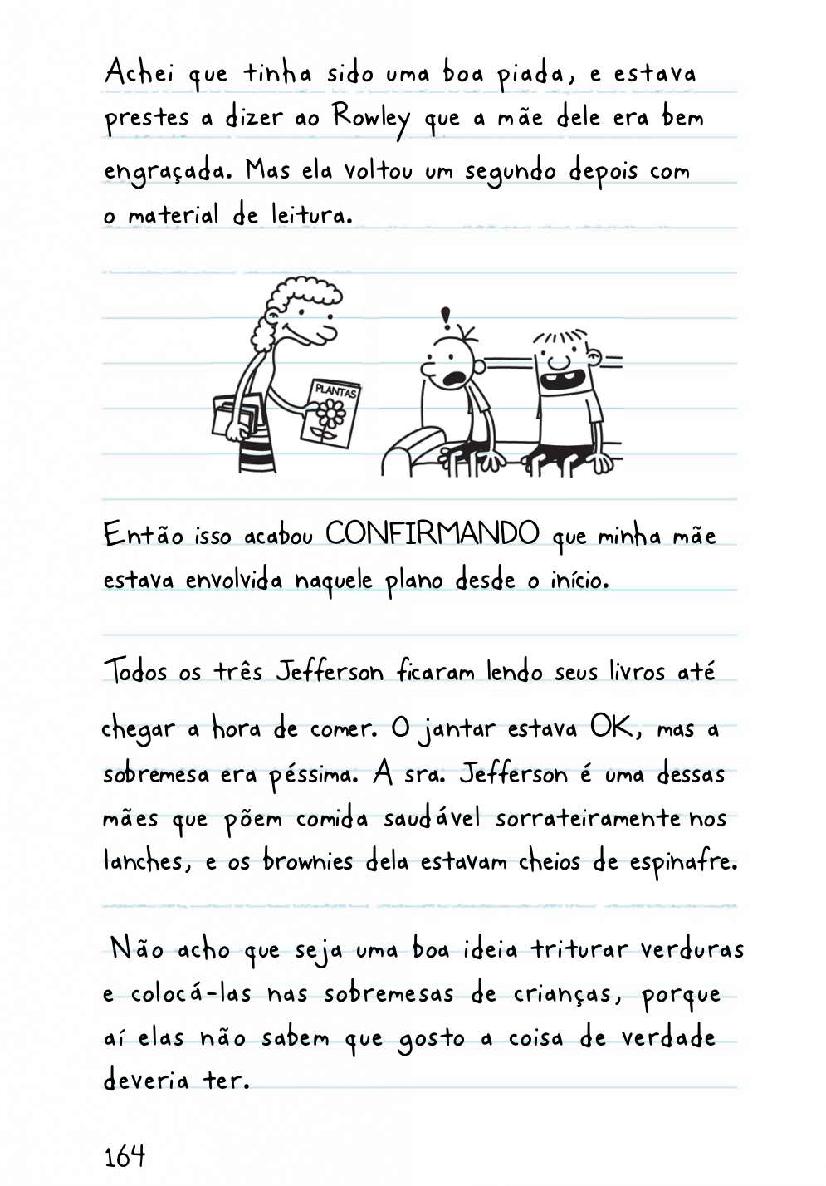 Achei que tinha sido uma boa piada, e estava
prestes a dizer ao Rowley que a mãe dele era bem
engraçada. Mas ela voltou um segundo depois com
o material de leitura.
!
PLANTAS
Então isso acabou CONFIRMANDO que minha mãe
estava envolvida naquele plano desde o início.
Todos os três Jefferson ficaram lendo seus livros até
chegar a hora de comer. O jantar estava OK, mas a
sobremesa era péssima. A sra. Jefferson é uma dessas
mães que põem comida saudável sorrateiramente nos
lanches, e os brownies dela estavam cheios de espinafre.
Não acho que seja uma boa ideia triturar verduras
e colocá-las nas sobremesas de crianças, porque
aí elas não sabem que gosto a coisa de verdade
deveria ter.
164